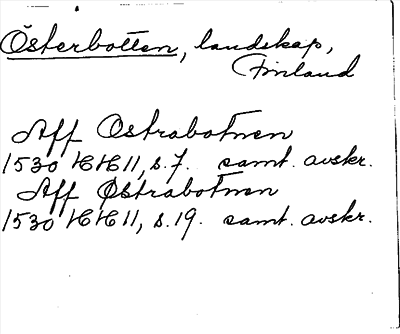 Österbotten, landskap,
Finland
Aff Ostrabotnen
1530 HH 11, s. 7. samt. avskr.
Aff Ostrabotnen
1530 HH 11, s. 19. samt. avskr.